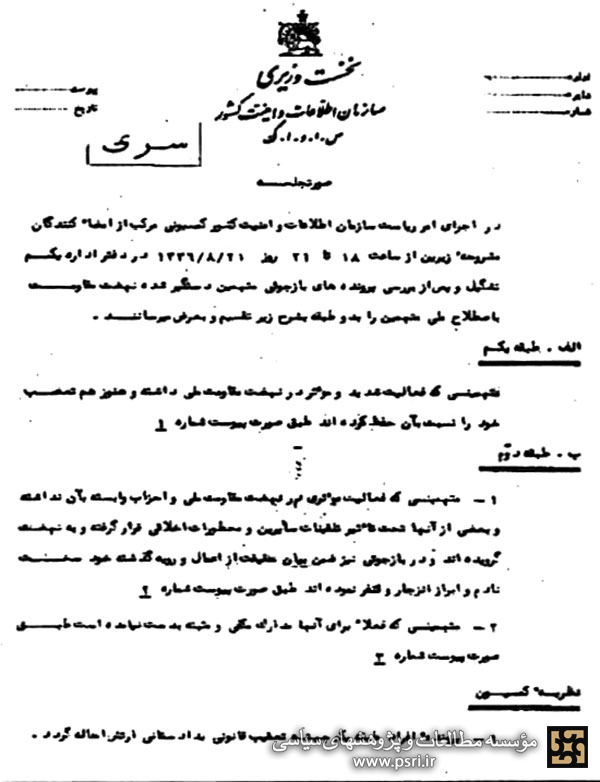 نخست وزیری
سازمان اطلاعات و امنیت کشور
س.ا.و.ا.ک
اداره
دایره
شماره
پیوست
تاریخ
سری
صورتجلسه
در اجرای امر ریاست سازمان اطلاعات و امنیت کشور کمیسیونی مرکب از امضاء کنندگان
مشروحه زیرین از ساعت ۱۸ تا ۲۱ روز ۱۳۳۶/۸/۲۱ در دفتر اداره یکم
تشکیل و پس از بررسی پرونده های بازجوئی متهمین دستگیر شده نهضت مقاومت
باصطلاح ملی متهمین را بدو طبقه بشرح زیر تقسیم و بعرض میرساند .
الف . طبقه یکم
متهمینی که فعالیت شدید و موثر در نهضت مقاومت ملی داشته و هنوز هم تعصب
خود را نسبت بآن حفظ کرده اند طبق صورت پیوست شماره ۱
ب . طبقه دوم
۱ - متهمینی که فعالیت موثری در نهضت مقاومت ملی و احزاب وابسته بآن نداشته
و بعضی از آنها تحت تاثیر تلقینات سایرین و محظورات اخلاقی قرار گرفته و به نهضت
گرویده اند و در بازجوئی نیز ضمن بیان حقیقت از اعمال و رویه گذشته خود سخت
نادم و ابراز انزجار و تنفر نموده اند طبق صورت پیوست شماره ۲
۲ - متهمینی که فعلا برای آنها مدارک مکفی و مثبته بدست نیامده است طبق
صورت پیوست شماره ۳
نظریه کمیسیون
۱ - تعقیب قانونی بدادستانی ارتش احاله گردد .
مؤسسه مطالعات و پژوهشهای سیاسی
www.psri.ir